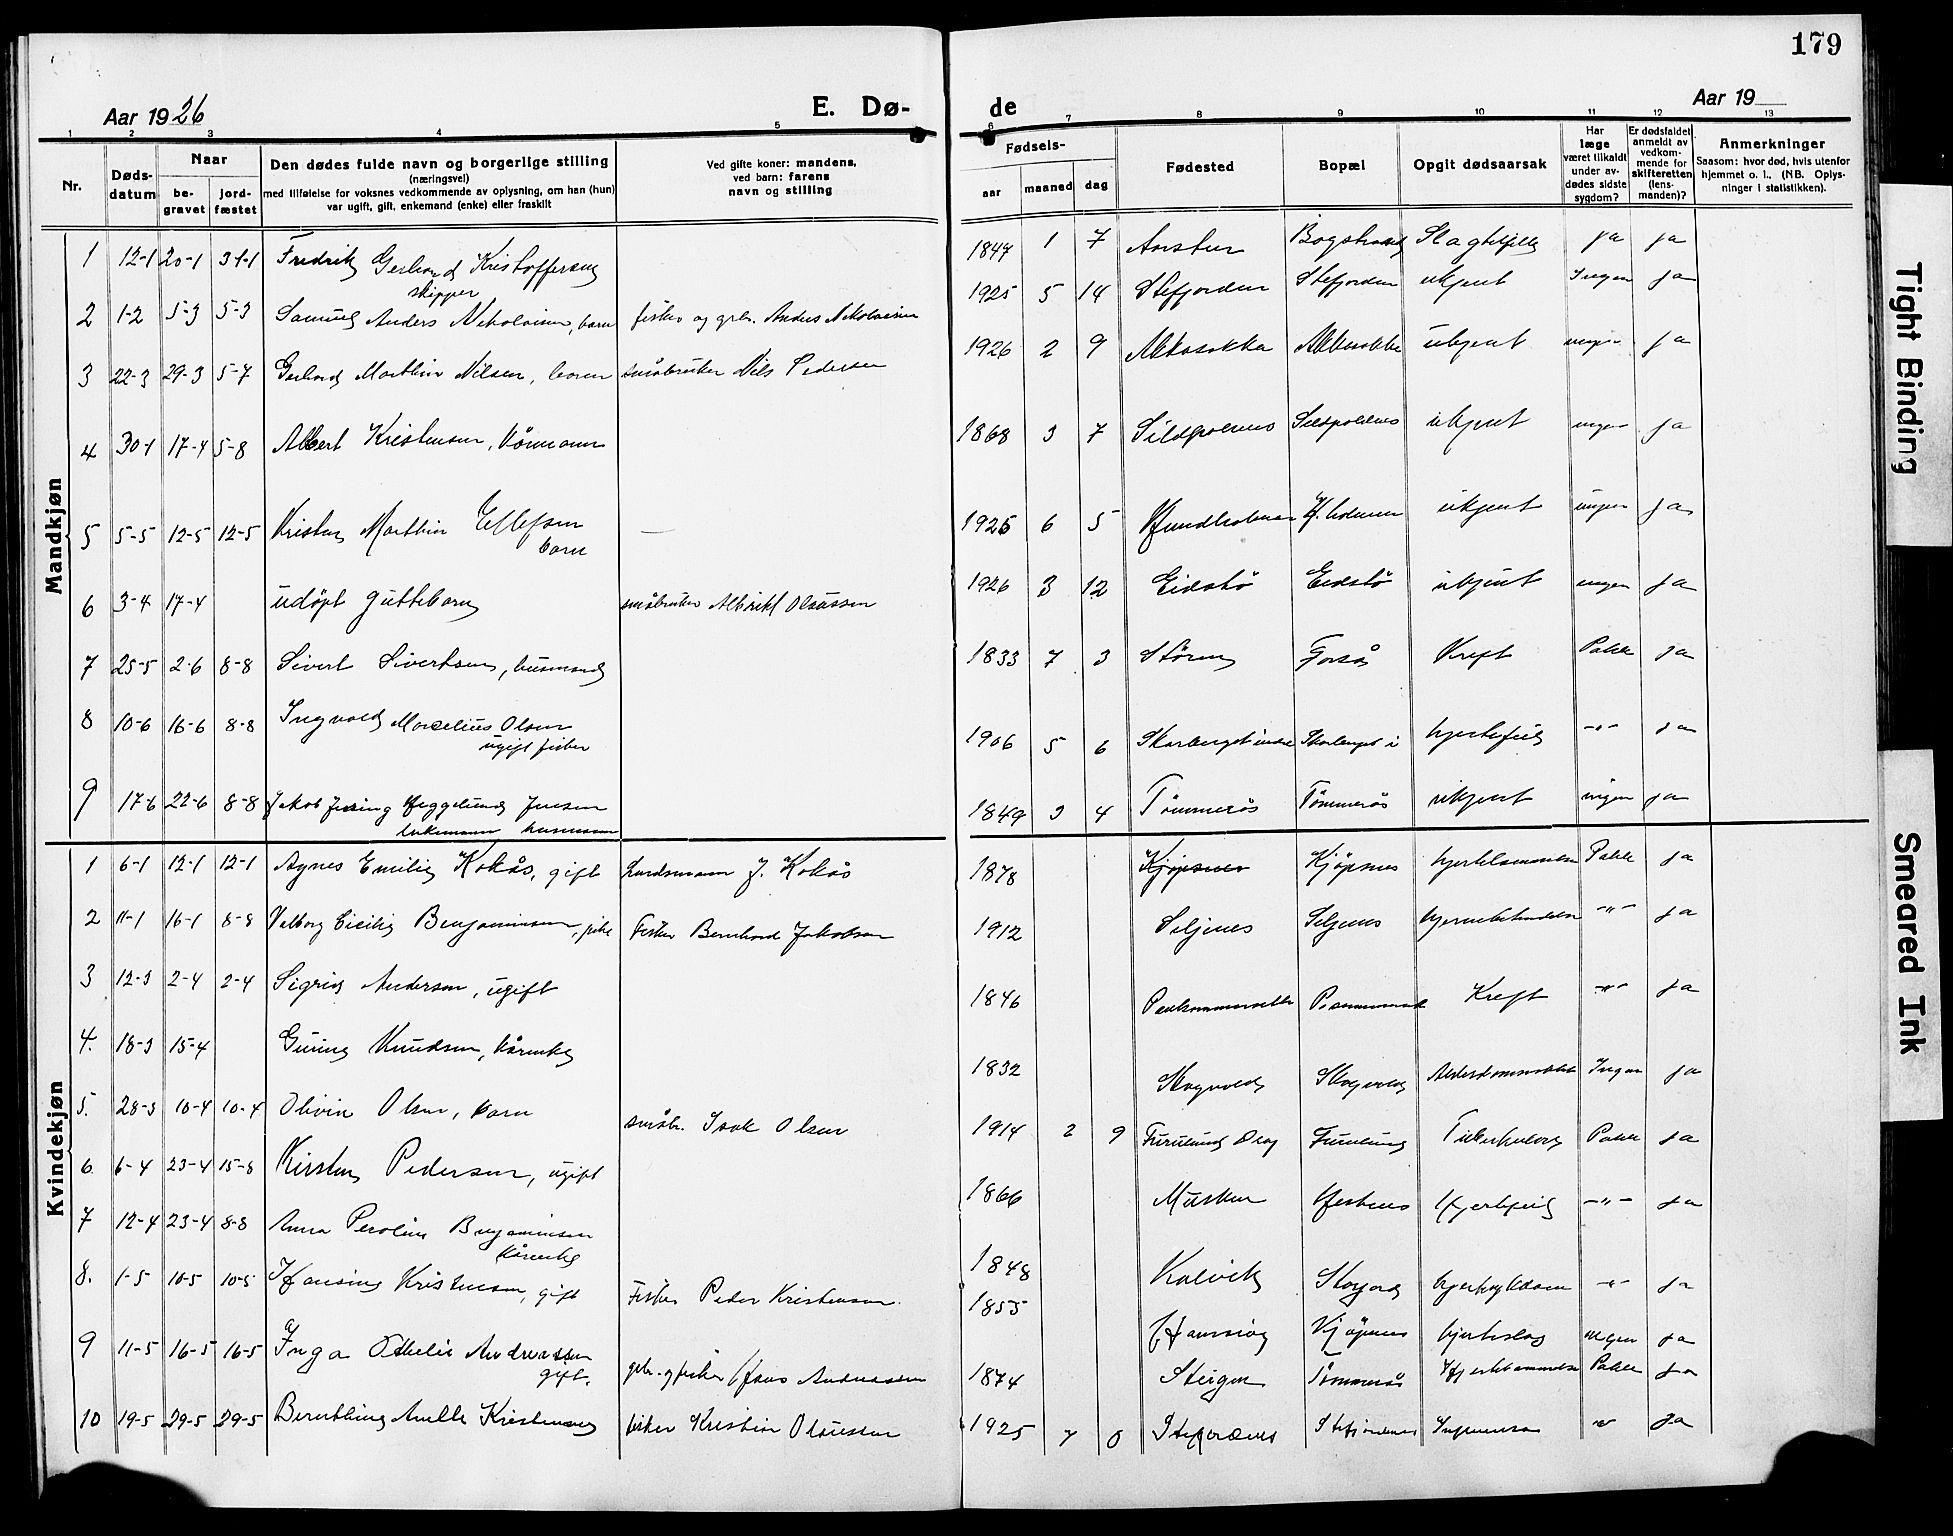 179
Aar 1926 E. Dø- de Aar 19
1 2 3 4 5 6 7 8 9 10 11 12 13
Nr. Døds-datum Naar be-gravet jord-fæstet Den dødes fulde navn og borgerlige stilling (næringsvei) med tilføielse for voksnes vedkommende av oplysning, om han (hun) var ugift, gift, enkemand (enke) eller fraskilt Ved gifte koner: mandens, ved barn: farens navn og stilling Fødsels- aar maaned dag Fødested Bopæl Opgit dødsaarsak Har læge været tilkaldt under av-dødes sidste sygdom? Er dødsfaldet anmeldt av vedkom-mende for skifteretten (lens-manden)? Anmerkninger Saasom: hvor død, hvis utenfor hjemmet o. l., (NB. Oplys-ninger i statistikken).
Mandkjøn
1 12-1 20-1 31-1 Fredrik Gerhard Kristoffersen skipper 1847 1 7 ja ja
2 1-2 5-3 5-3 Samuel Anders Nikolaisen, barn fisker og gbr. Anders Nikolaisen 1925 5 14 Stefjorden Stefjorden ukjent Ingen ja
3 22-3 29-3 5-7 Gerhard Marthin Nilsen, barn småbruker Nils Pedersen 1926 2 9 ukjent ingen ja
4 30-1 17-4 5-8 Albert Kristensen, kårmann 1868 3 7 Sildpolnes Sildpolnes ukjent ingen ja
5 5-5 12-5 12-5 Kristen Marthin Ellefsen barn — 1925 6 5 ukjent ingen ja
6 3-4 17-4 udöpt guttebarn småbruker Albrikt Olaussen 1926 3 12 Eidstö Eidstö ukjent ingen ja
7 25-5 2-6 8-8 Sivert Sivertsen, husmand 1833 7 3 Stören Forså Kreft Pakke ja
8 10-6 16-6 8-8 Ingvald Marcelius Olsen ugift fisker 1906 5 6 Skarberget indre Skarberget i hjertefeil -"- ja
9 17-6 22-6 8-8 Jakob Jensing Heggelund Jensen enkemann husmann 1849 3 4 Tömmerås Tömmerås ukjent ingen ja
Kvindekjøn
1 6-1 12-1 12-1 Agnes Emilie Kokås, gift Lendsmann J. Kokås 1878 Kjöpsnes Kjöpsnes hjertelammelse Pakke ja
2 11-1 16-1 8-8 Valborg Cicilie Benjaminsen, pike Fisker Bernhard Jakobsen 1912 Seljenes Seljenes -"- ja
3 12-3 2-4 2-4 Sigrid Andersen, ugift 1846 Kreft -"- ja
4. 18-3 15-4 Guring Knudsen, kårenke 1832 Skogvold Skogvold Ingen ja
5. 28-3 10-4 10-4 Olivia Olsen, barn småbr. Isak Olsen 1914 2 9 Furulund Drag Furulund Tuberkulose Pakke ja
6 6-4 23-4 15-8 Kirsten Pedersen, ugift 1866 Musken Hestnes Hjertefeil -"- ja
7 12-4 23-4 8-8 Anna Peroline Benjaminsen kårenke 1848 Kalvik -"- ja
8. 1-5 10-5 10-5 Hansine Kristensen, gift Fisker Peder Kristensen 1855 Kjöpsnes hjerteslag ingen ja
9 11-5 16-5 16-5 Inga Othelie Andreassen gift. gbr. og fisker Hans Andreassen 1874 Steigen Tömmerås Hjertelammelse Pakke ja
10 19-5 29-5 29-5 Berntine Amelle Kristensen fisker Kristian Olaussen 1925 7 Stefjordnes Stefjordnes Influensa " ja
Tight Binding
Smeared Ink